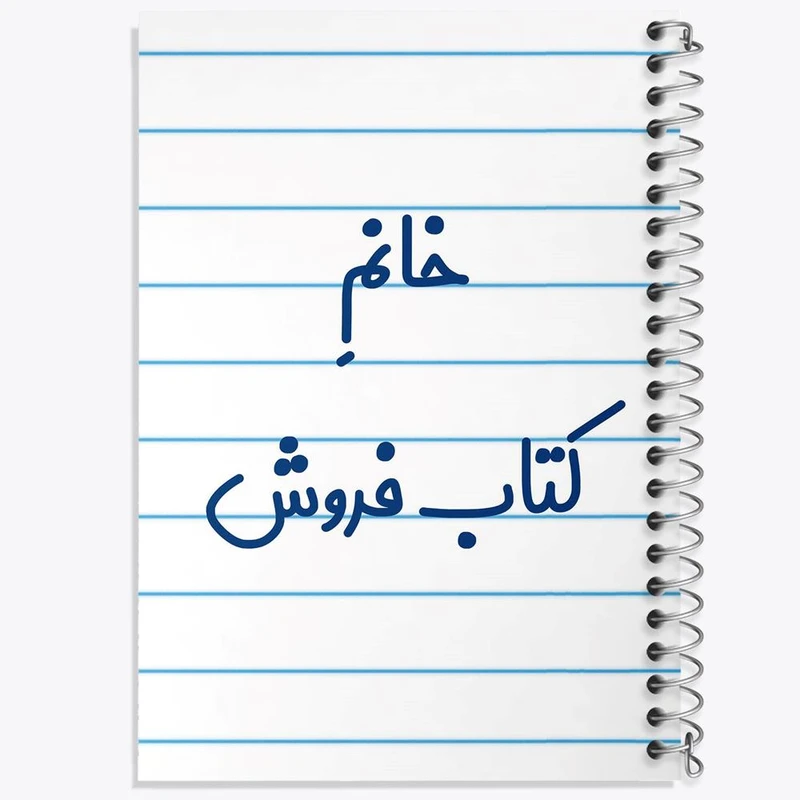 خانمِ
کتاب فروش